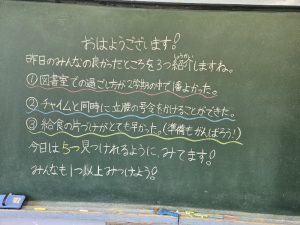 おはようございます!
昨日のみんなの良かったところを3つ紹介しますね。
①図書室での過ごし方が2学期の中で1番よかった。
②チャイムと同時に立腰の号令をかけることができた。
③給食の片づけがとても早かった。(準備もがんばろう!)
今日は5つ見つけれるように、みてます!
みんなも1つ以上みつけよう!